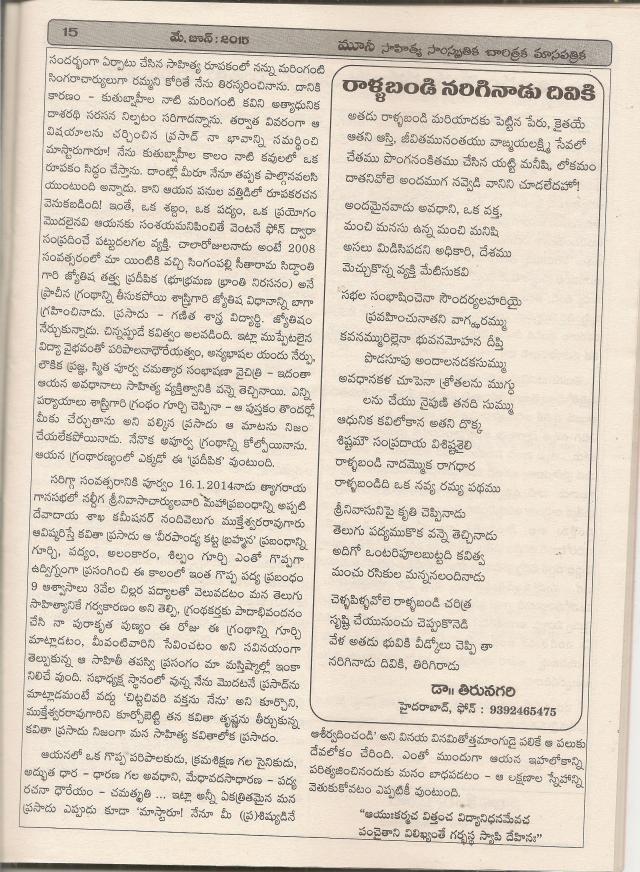 15
మే, జూన్ : 2015
మూసీ సాహిత్య సాంస్కృతిక చారిత్రక మాసపత్రిక
సందర్భంగా ఏర్పాటు చేసిన సాహిత్య రూపకంలో నన్ను మరింగంటి
సింగరాచార్యులుగా రమ్మని కోరితే నేను తిరస్కరించినాను. దానికి
కారణం - కుతుబ్షాహీల నాటి మరింగంటి కవిని అత్యాధునిక
దాశరథి సరసన నిల్పటం సరిగాదన్నాను. తర్వాత వివరంగా ఆ
విషయాలను చర్చించిన ప్రసాద్ నా భావాన్ని సమర్థించి
మాస్టారుగారూ! నేను కుతుబ్షాహీల కాలం నాటి కవులలో ఒక
రూపకం సిద్ధం చేస్తాను. దాంట్లో మీరూ నేనూ తప్పక పాల్గొనవలసి
యుంటుంది అన్నాడు. కాని ఆయన పనుల వత్తిడిలో రూపకరచన
వెనుకబడింది! ఇంతే, ఒక శబ్దం, ఒక పద్యం, ఒక ప్రయోగం
మొదలైనవి ఆయనకు సంశయమనిపించితే వెంటనే ఫోన్ ద్వారా
సంప్రదించే పట్టుదలగల వ్యక్తి. చాలారోజులనాడు అంటే 2008
సంవత్సరంలో మా యింటికి వచ్చి సింగంపల్లి సీతారామ సిద్ధాంతి
గారి జ్యోతిష తత్త్వ ప్రదీపిక (భూభ్రమణ భ్రాంతి నిరసనం) అనే
ప్రాచీన గ్రంథాన్ని తీసుకపోయి శాస్త్రిగారి జ్యోతిష విధానాన్ని బాగా
గ్రహించినాడు. ప్రసాదు - గణిత శాస్త్ర విద్యార్థి. జ్యోతిషం
నేర్చుకున్నాడు. చిన్నప్పుడే కవిత్వం అలవడింది. ఇట్లా ముప్పేటలైన
విద్యా వైభవంతో పరిపాలనాధౌరేయత్వం, అన్యభాషల యందు నేర్పు,
లౌకిక ప్రజ్ఞ, స్మిత పూర్వ చమత్కార సంభాషణా వైచిత్రి - ఇదంతా
ఆయన అవధానాలు సాహిత్య వ్యక్తిత్వానికి వన్నె తెచ్చినాయి. ఎన్ని
పర్యాయాలు శాస్త్రిగారి గ్రంథం గూర్చి చెప్పినా - ఆ పుస్తకం తొందర్లో
మీకు చేర్చుతాను అని పల్కిన ప్రసాదు ఆ మాటను నిజం
చేయలేకపోయినాడు. నేనొక అపూర్వ గ్రంథాన్ని కోల్పోయినాను.
ఆయన గ్రంథారణ్యంలో ఎక్కడో ఈ 'ప్రదీపిక' వుంటుంది.
సరిగ్గా సంవత్సరానికి పూర్వం 16.1.2014నాడు త్యాగరాయ
గానసభలో నల్దీగ శ్రీనివాసాచార్యులవారి మహాప్రబంధాన్ని అప్పటి
దేవాదాయ శాఖ కమీషనర్ నందివెలుగు ముక్తేశ్వరరావుగారు
ఆవిష్కరిస్తే కవితా ప్రసాదు ఆ 'వీరపాండ్య కట్ట బ్రహ్మన' ప్రబంధాన్ని
గూర్చి, పద్యం, అలంకారం, శిల్పం గూర్చి ఎంతో గొప్పగా
ఉద్విగ్నంగా ప్రసంగించి ఈ కాలంలో ఇంత గొప్ప పద్య ప్రబంధం
9 ఆశ్వాసాలు 3వేల చిల్లర పద్యాలతో వెలువడటం మన తెలుగు
సాహిత్యానికే గర్వకారణం అని తెల్పి, గ్రంథకర్తకు పాదాభివందనం
చేసి నా పురాకృత పుణ్యం ఈ రోజు ఈ గ్రంథాన్ని గూర్చి
మాట్లాడటం, మీవంటివారిని సేవించటం అని సవినయంగా
తెల్పుకున్న ఆ సాహితీ తపస్వి ప్రసంగం మా మస్తిష్కాల్లో ఇంకా
నిలిచే వుంది. సభాధ్యక్ష స్థానంలో వున్న నేను మొదటనే ప్రసాద్‌ను
మాట్లాడమంటే వద్దు 'చిట్టచివరి వక్తను నేను' అని కూర్చొని,
ముక్తేశ్వరరావుగారిని కూర్చోబెట్టి తన కవితా తృష్ణను తీర్చుకున్న
కవితా ప్రసాదు నిజంగా మన సాహిత్య కవితాలోక ప్రసాదం.
ఆయనలో ఒక గొప్ప పరిపాలకుడు, క్రమశిక్షణ గల సైనికుడు,
అద్భుత ధార - ధారణ గల అవధాని, మేధావదసాధారణ - పద్య
రచనా ధౌరేయం - చమత్కృతి ... ఇట్లా అన్నీ ఏకత్రితమైన మన
ప్రసాదు ఎప్పుడు కూడా 'మాస్టారూ! నేనూ మీ (ప్ర)శిష్యుడినే
రాళ్ళబండి నరిగినాడు దివికి
అతడు రాళ్ళబండి మరియాదకు పెట్టిన పేరు, కైతయే
ఆతని ఆస్తి, జీవితమునంతయు వాఙ్మయలక్ష్మి సేవలో
చేతము పొంగనంకితము చేసిన యట్టి మనీషి, లోకమం
దాతనివోలె అందముగ నవ్వెడి వానిని చూడలేదహో!
అందమైనవాడు అవధాని, ఒక వక్త,
మంచి మనసు ఉన్న మంచి మనిషి
అసలు మిడిసిపడని అధికారి, దేశము
మెచ్చుకొన్న వ్యక్తి మేటిసుకవి
సభల సంభాషించెనా సౌందర్యలహరియై
ప్రవహించునాతని వాగ్ఝరమ్ము
కవనమ్మురిల్లెనా భువనమోహన దీప్తి
పొడసూపు అందాలనడకసుమ్ము
అవధానకళ చూపెనా శ్రోతలను ముగ్ధు
లను చేయు నైపుణి తనది సుమ్ము
ఆధునిక కవిలోకాన అతని దొక్క
శిష్టమౌ సంప్రదాయ విశిష్టశైలి
రాళ్ళబండి నాదమ్మొక రాగధార
రాళ్ళబండిది ఒక నవ్య రమ్య పథము
శ్రీనివాసునిపై కృతి చెప్పినాడు
తెలుగు పద్యముకొక వన్నె తెచ్చినాడు
అదిగో ఒంటరిపూలబుట్టది కవిత్వ
మంచు రసికుల మన్ననలందినాడు
చెళ్ళపిళ్ళవోలె రాళ్ళబండి చరిత్ర
సృష్టి చేయునుంచు చెప్పుకొనెడి
వేళ అతడు భువికి వీడ్కోలు చెప్పి తా
నరిగినాడు దివికి, తిరిగిరాడు
డా॥ తిరునగరి
హైదరాబాద్, ఫోన్ : 9392465475
ఆశీర్వదించండి' అని వినయ వినమితోత్తమాంగుడై పలికే ఆ పలుకు
దేవలోకం చేరింది. ఎంతో ముందుగా ఆయన ఇహలోకాన్ని
పరిత్యజించినందుకు మనం బాధపడటం - ఆ లక్షణాల స్నేహాన్ని
వెతుక్కోవటం ఎప్పటికీ వుంటుంది.
"ఆయుఃకర్మచ విత్తంచ విద్యానిధనమేవచ
పంచైతాని విలిఖ్యంతే గర్భస్థ స్యాపి దేహినః"